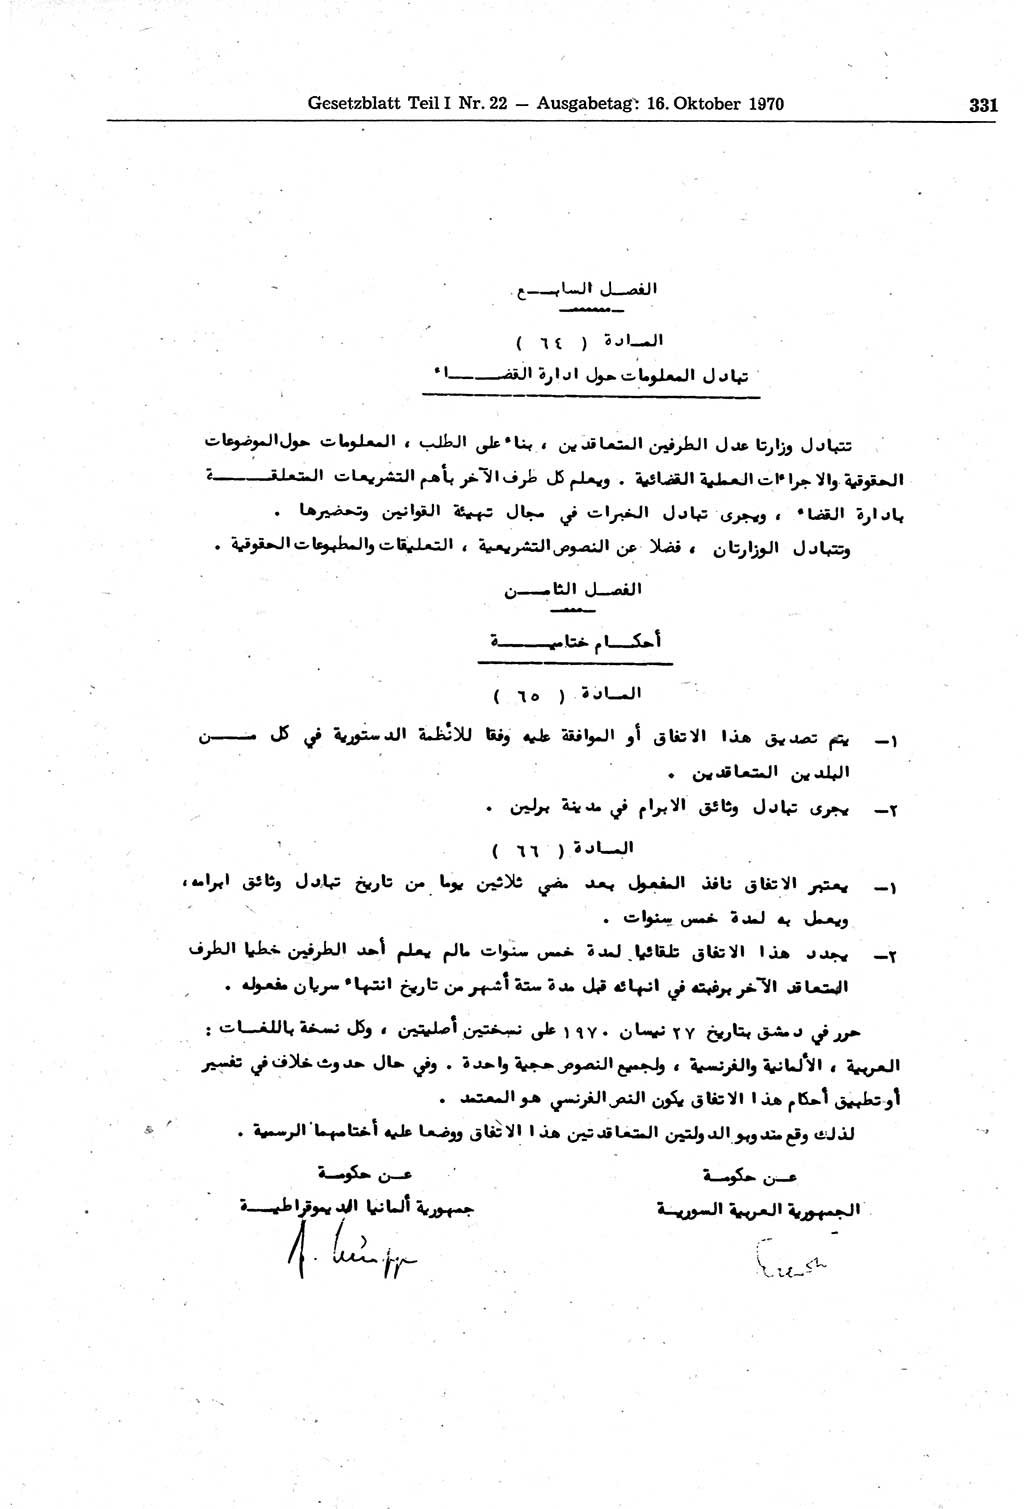 Gesetzblatt Teil I Nr. 22 — Ausgabetag: 16. Oktober 1970 331
الفصل السابع
المادة ( ٦٤ )
تبادل المعلومات حول ادارة القضاء
تتبادل وزارتا عدل الطرفين المتعاقدين ، بناء على الطلب ، المعلومات حول الموضوعات
الحقوقية والاجراءات العملية القضائية . ويعلم كل طرف الآخر بأهم التشريعات المتعلقة
بادارة القضاء ، ويجرى تبادل الخبرات في مجال تهيئة القوانين وتحضيرها .
وتتبادل الوزارتان ، فضلا عن النصوص التشريعية ، التعليقات والمطبوعات الحقوقية .
الفصل الثامن
أحكام ختامية
المادة ( ٦٥ )
١— يتم تصديق هذا الاتفاق أو الموافقة عليه وفقا للأنظمة الدستورية في كل من
البلدين المتعاقدين .
٢— يجرى تبادل وثائق الابرام في مدينة برلين .
المادة ( ٦٦ )
١— يعتبر الاتفاق نافذ المفعول بعد مضي ثلاثين يوما من تاريخ تبادل وثائق ابرامه،
ويعمل به لمدة خمس سنوات .
٢— يجدد هذا الاتفاق تلقائيا لمدة خمس سنوات مالم يعلم أحد الطرفين خطيا الطرف
المتعاقد الآخر برغبته في انهائه قبل مدة ستة أشهر من تاريخ انتهاء سريان مفعوله .
حرر في دمشق بتاريخ ٢٧ نيسان ١٩٧٠ على نسختين أصليتين ، وكل نسخة باللغات :
العربية ، الألمانية والفرنسية ، ولجميع النصوص حجية واحدة . وفي حال حدوث خلاف في تفسير
أو تطبيق أحكام هذا الاتفاق يكون النص الفرنسي هو المعتمد .
لذلك وقع مندوبو الدولتين المتعاقدتين هذا الاتفاق ووضعا عليه أختامهما الرسمية .
عن حكومة عن حكومة
الجمهورية العربية السورية جمهورية ألمانيا الديموقراطية